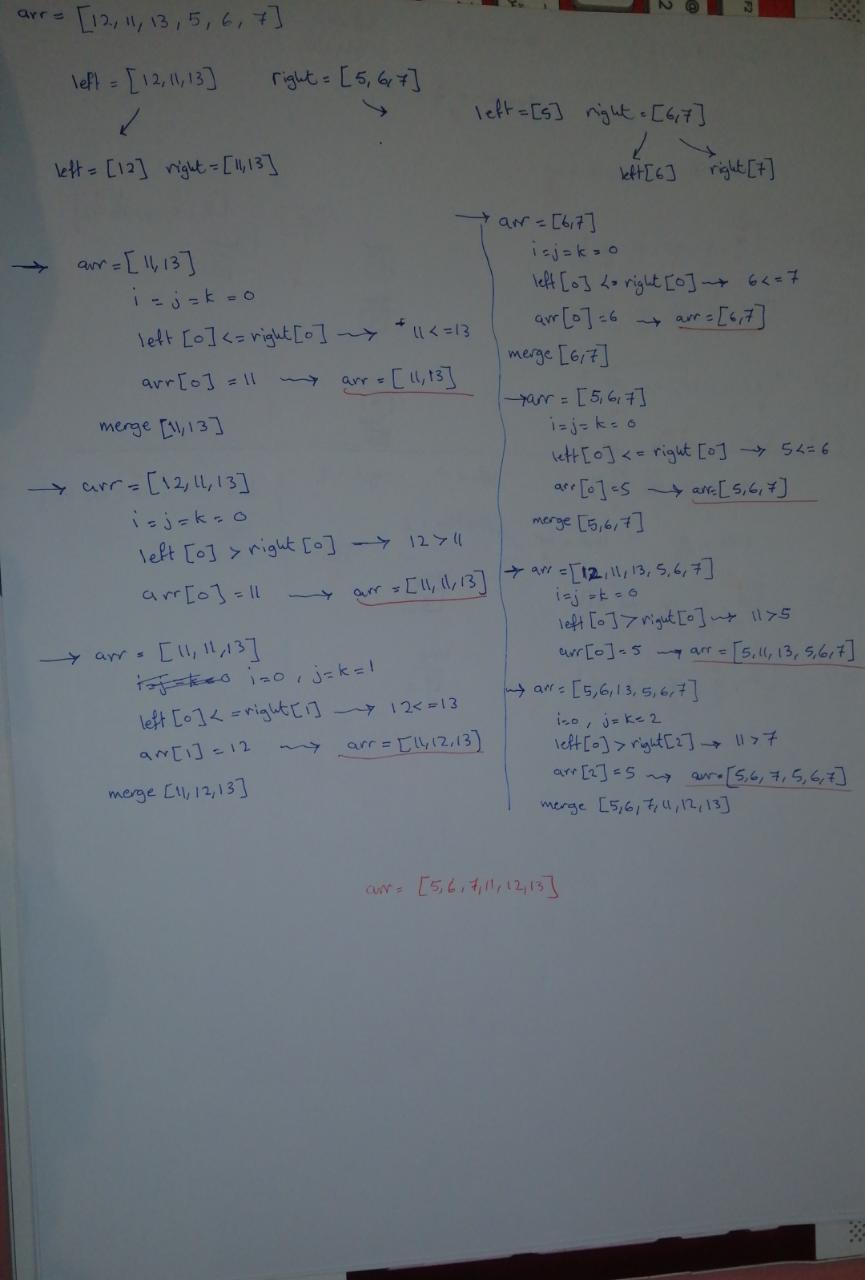 arr = [12, 11, 13, 5, 6, 7]
left = [12,11,13] right = [5,6,7]
left = [12] right = [11,13]
left = [5] right = [6,7]
left[6] right[7]
→ arr = [11,13]
i = j = k = 0
left [0] <= right[0] → 11 <= 13
arr[0] = 11 → arr = [11,13]
merge [11,13]
→ arr = [12,11,13]
i = j = k = 0
left [0] > right [0] → 12 > 11
arr[0] = 11 → arr = [11,11,13]
→ arr = [11,11,13]
i=j=k=0 i=0 , j=k=1
left [0] <= right[1] → 12 <= 13
arr[1] = 12 → arr = [11,12,13]
merge [11,12,13]
→ arr = [6,7]
i=j=k=0
left [0] <= right[0] → 6 <= 7
arr[0] = 6 → arr = [6,7]
merge [6,7]
→ arr = [5,6,7]
i=j=k=0
left[0] <= right [0] → 5 <= 6
arr[0] = 5 → arr = [5,6,7]
merge [5,6,7]
→ arr = [12,11,13,5,6,7]
i=j=k=0
left[0] > right[0] → 11 > 5
arr[0] = 5 → arr = [5,11,13,5,6,7]
→ arr = [5,6,13,5,6,7]
i=0 , j=k=2
left[0] > right[2] → 11 > 7
arr[2] = 5 → arr = [5,6,7,5,6,7]
merge [5,6,7,11,12,13]
arr = [5,6,7,11,12,13]